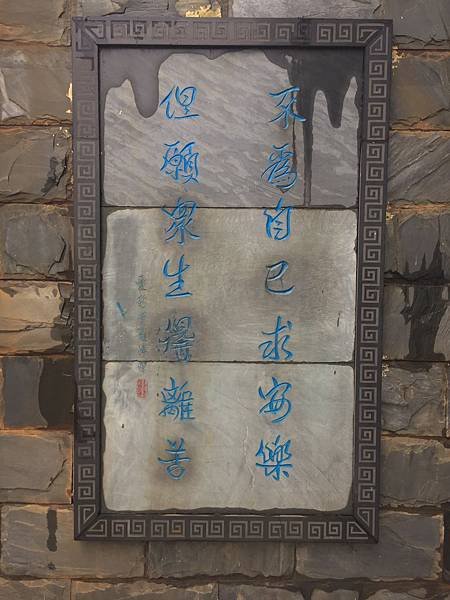 不為自己求安樂
但願眾生得離苦